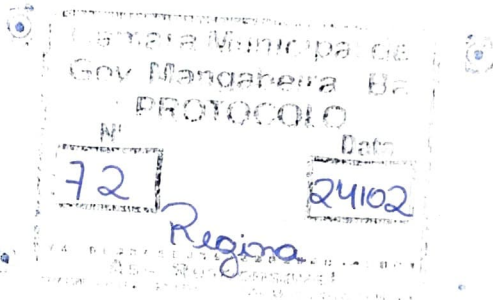 Camara Municipal de
Gov Mangabeira Ba
PROTOCOLO
Nº Data
72 24/02
Regina